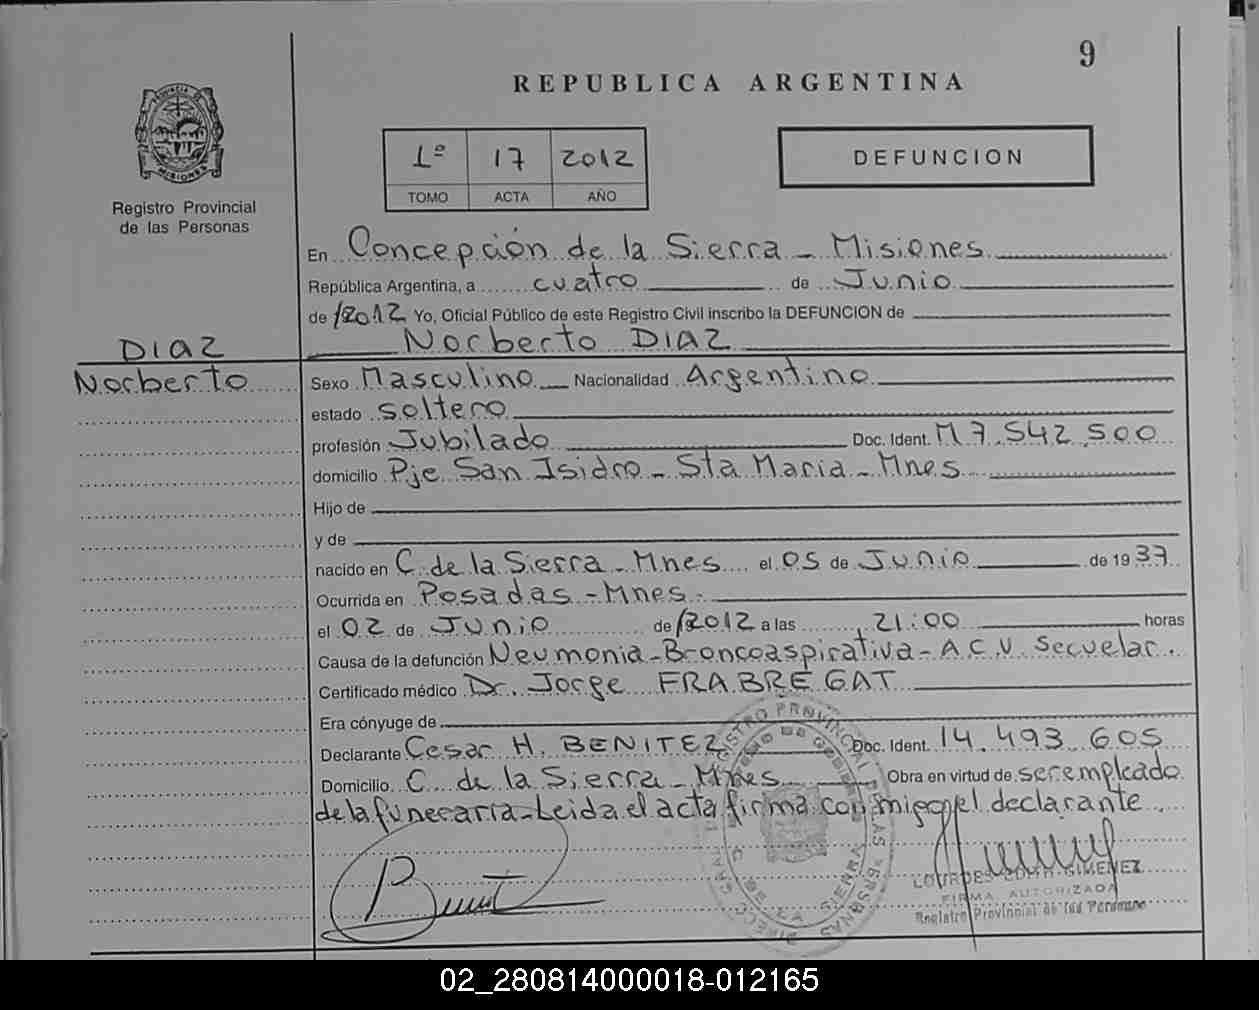 9
REPUBLICA ARGENTINA
PROVINCIA DE MISIONES
1º 17 2012
TOMO ACTA AÑO
DEFUNCION
Registro Provincial
de las Personas
En Concepción de la Sierra - Misiones
República Argentina, a cuatro de Junio
de /2012 Yo, Oficial Público de este Registro Civil inscribo la DEFUNCION de
DIAZ
Norberto DIAZ
Norberto
Sexo Masculino Nacionalidad Argentino
estado soltero
profesión Jubilado Doc. Ident. M 7.542.500
domicilio Pje San Isidro - Sta Maria - Mnes
Hijo de
y de
nacido en C. de la Sierra - Mnes el 05 de Junio de 1937
Ocurrida en Posadas - Mnes.
el 02 de Junio de /2012 a las 21:00 horas
Causa de la defunción Neumonia - Broncoaspirativa - A.C.V. Secuelar.
Certificado médico Dr. Jorge FRABREGAT
Era cónyuge de
Declarante Cesar H. BENITEZ Doc. Ident. 14.493.605
Domicilio C. de la Sierra - Mnes Obra en virtud de ser empleado
de la funeraria - Leida el acta firma conmigo el declarante
REGISTRO PROVINCIAL DE LAS PERSONAS
C. DE LA SIERRA
LOURDES EDITH GIMENEZ
FIRMA AUTORIZADA
Registro Provincial de las Personas
02_280814000018-012165